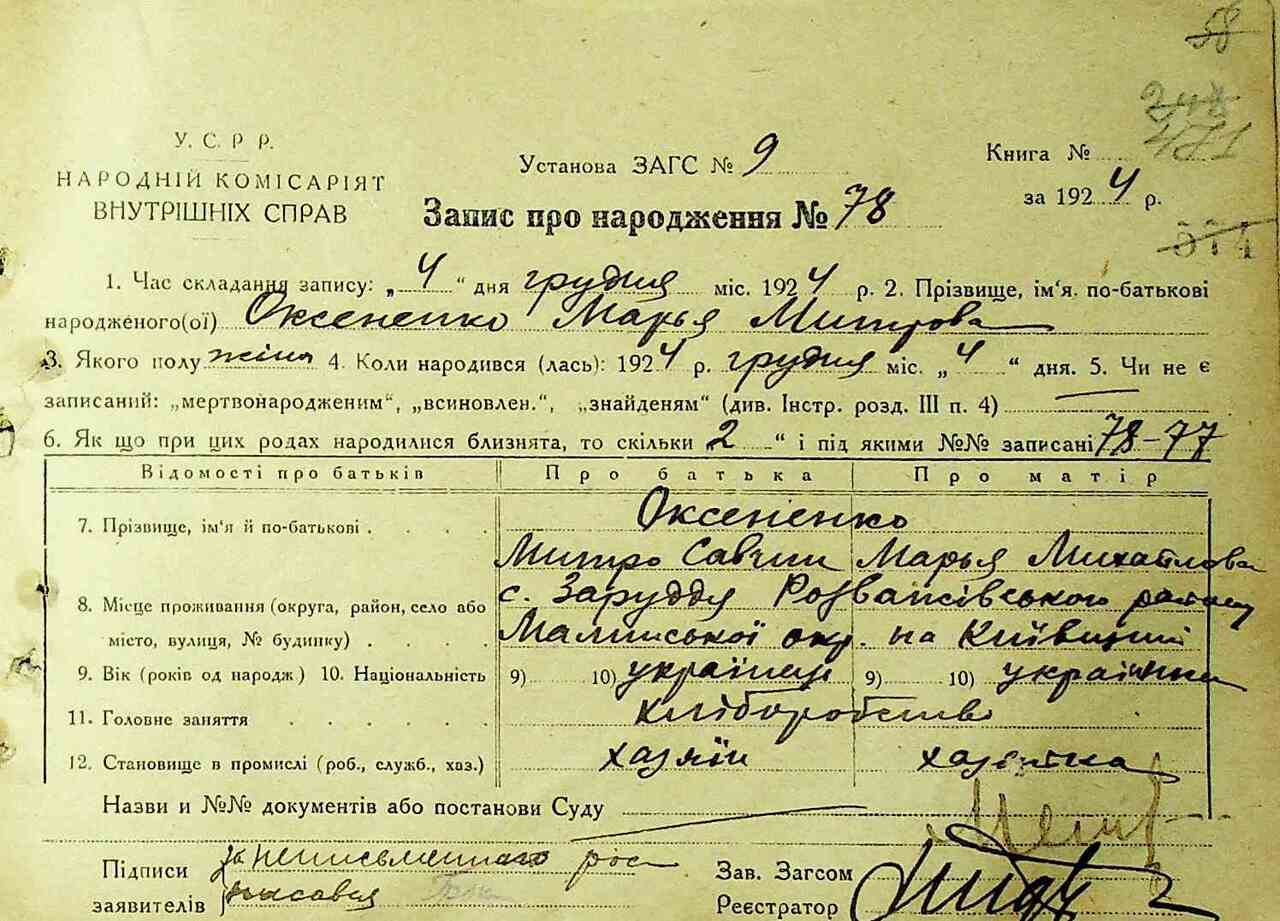 58
248
471
У. С. Р Р.
НАРОДНІЙ КОМІСАРІЯТ
ВНУТРІШНІХ СПРАВ
Установа ЗАГС № 9
Книга №
за 1924 р.
Запис про народження № 78
574
1. Час складання запису: „ 4 “ дня грудня міс. 1924 р. 2. Прізвище, ім'я. по-батькові
народженого(ої) Оксененко Марья Митрова
3. Якого полу жіня 4. Коли народився (лась): 1924 р. грудня міс. „ 4 “ дня. 5. Чи не є
записаний: „мертвонародженим“, „всиновлен.“, „знайденям“ (див. Інстр. розд. III п. 4)
6. Як що при цих родах народилися близнята, то скільки 2 “ і під якими №№ записані 78-77
Відомості про батьків Про батька Про матір
7. Прізвище, ім'я й по-батькові . . . . Оксененко
Митро Савчин Марья Михайлова
8. Місце проживання (округа, район, село або с. Заруддя Розважівського району
місто, вулиця, № будинку) . . . . Малинської окр. на Київщині
9. Вік (років од народж) 10. Національність 9) 10) українець 9) 10) українка
11. Головне заняття . . . . . . хліборобство
12. Становище в промислі (роб., служб., хаз.) хазяїн хазяйка
Назви и №№ документів або постанови Суду
Підписи за неписьменного рос
заявителів
Зав. Загсом
Реєстратор